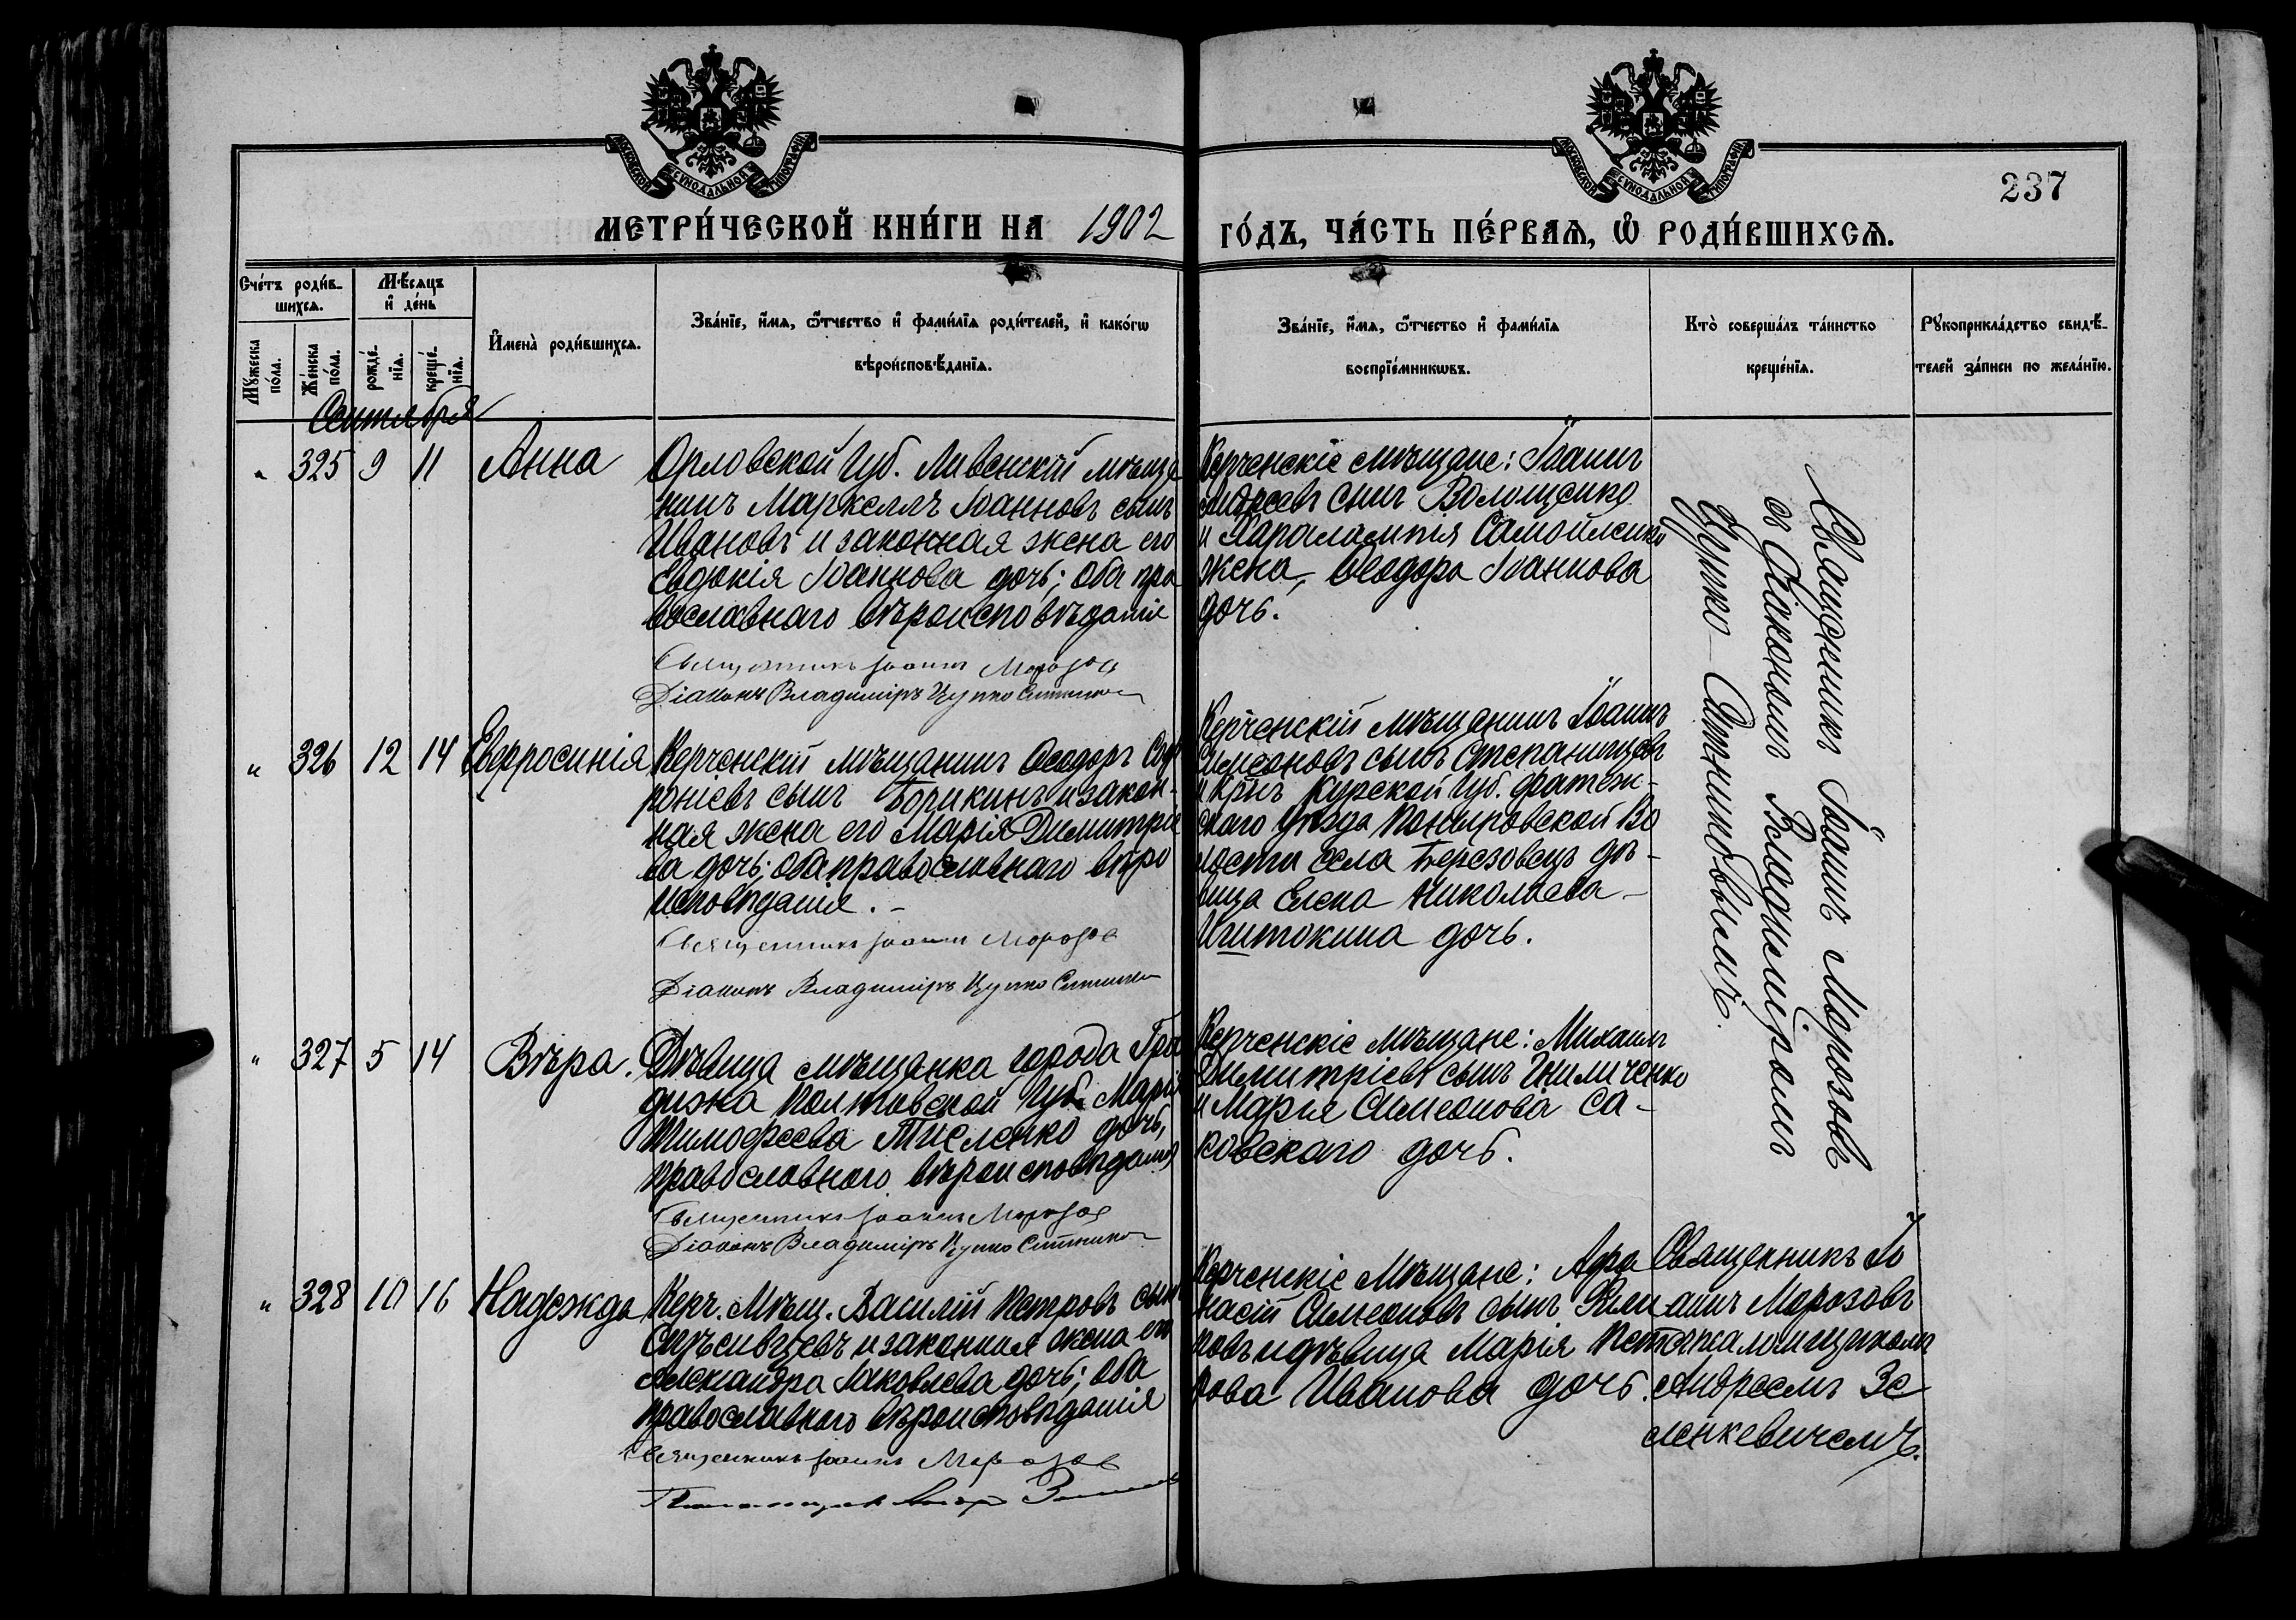 МОСКОВСКОЙ СУНОДАЛЬНОЙ ТИПОГРАФІИ
МОСКОВСКОЙ СУНОДАЛЬНОЙ ТИПОГРАФІИ
237
МЕТРИ́ЧЕСКОЙ КНИ́ГИ НА 1902 ГО́ДЪ, ЧА́СТЬ ПЕ́РВАѦ, Ѡ҆ РОДИ́ВШИХСѦ.
Сче́тъ роди́в-
шихсѧ.
Мѣ́сѧцъ
и҆ де́нь
Мꙋ́жеска
по́ла.
Же́нска
по́ла.
рожде́-
нїѧ.
креще́-
нїѧ.
И҆мена̀ роди́вшихсѧ.
Зва́нїе, и҆́мѧ, ѻ҆́тчество и҆ фами́лїѧ роди́телей, и҆ како́гѡ
вѣроисповѣ́данїѧ.
Зва́нїе, и҆́мѧ, ѻ҆́тчество и҆ фами́лїѧ
воспрїе́мникѡвъ.
Кто̀ соверша́лъ та́инство
креще́нїѧ.
Рꙋкоприкла́дство свидѣ́-
телей за́писи по жела́нїю.
Сентября
" 325 9 11 Анна
Орловской Губ. Ливенскій мѣща
нинъ Маркеллъ Іоанновъ сынъ
Ивановъ и законная жена его
Евдокія Іоаннова дочь; оба пра
вославнаго вѣроисповѣданія
Священникъ Іоаннъ Морозов
Діаконъ Владиміръ Цупко Ситников
Керченскіе мѣщане: Іоаннъ
Андреевъ сынъ Волощенко
и Харалампія Самойленко
жена, Ѳеодора Іоаннова
дочь.
Священникъ Іоаннъ Морозовъ
съ Діакономъ Владиміромъ
Цупко-Ситниковымъ.
" 326 12 14 Евфросинія
Керченскій мѣщанинъ Ѳеодоръ Соф
роніевъ сынъ Борикинъ и закон-
ная жена его Марія Димитріе
ва дочь; оба православнаго вѣро
исповѣданія. -
Священникъ Іоаннъ Морозов
Діаконъ Владиміръ Цупко Ситников
Керченскій мѣщанинъ Іоаннъ
Симеоновъ сынъ Степанищевъ
и крнъ Курской Губ. Фатеж-
скаго уѣзда Поныровской Во
лости села Березовецъ дѣ-
вица Елена Николаева -
дочь.
" 327 5 14 Вѣра.
Дѣвица мѣщанка города Гра
дижка Полтавской Губ. Марія
Тимофеева Тисленко дочь,
православнаго вѣроисповѣданія
Священникъ Іоаннъ Морозов
Діаконъ Владиміръ Цупко Ситников
Керченскіе мѣщане: Михаилъ
Димитріевъ сынъ Гниличенко
и Марія Симеонова Са-
ковскаго дочь.
" 328 10 16 Надежда
Керч. Мѣщ. Василій Петровъ сынъ
и законная жена его
Александра Іаковлева дочь; оба
православнаго вѣроисповѣданія
Священникъ Іоаннъ Морозов
Керченскіе Мѣщане: Афа
насій Симеоновъ сынъ Фили
повъ и дѣвица Марія Пет
рова Иванова дочь.
Священникъ Іо
аннъ Морозовъ
съ псаломщикомъ
Андреемъ Зе
ленкевичемъ.